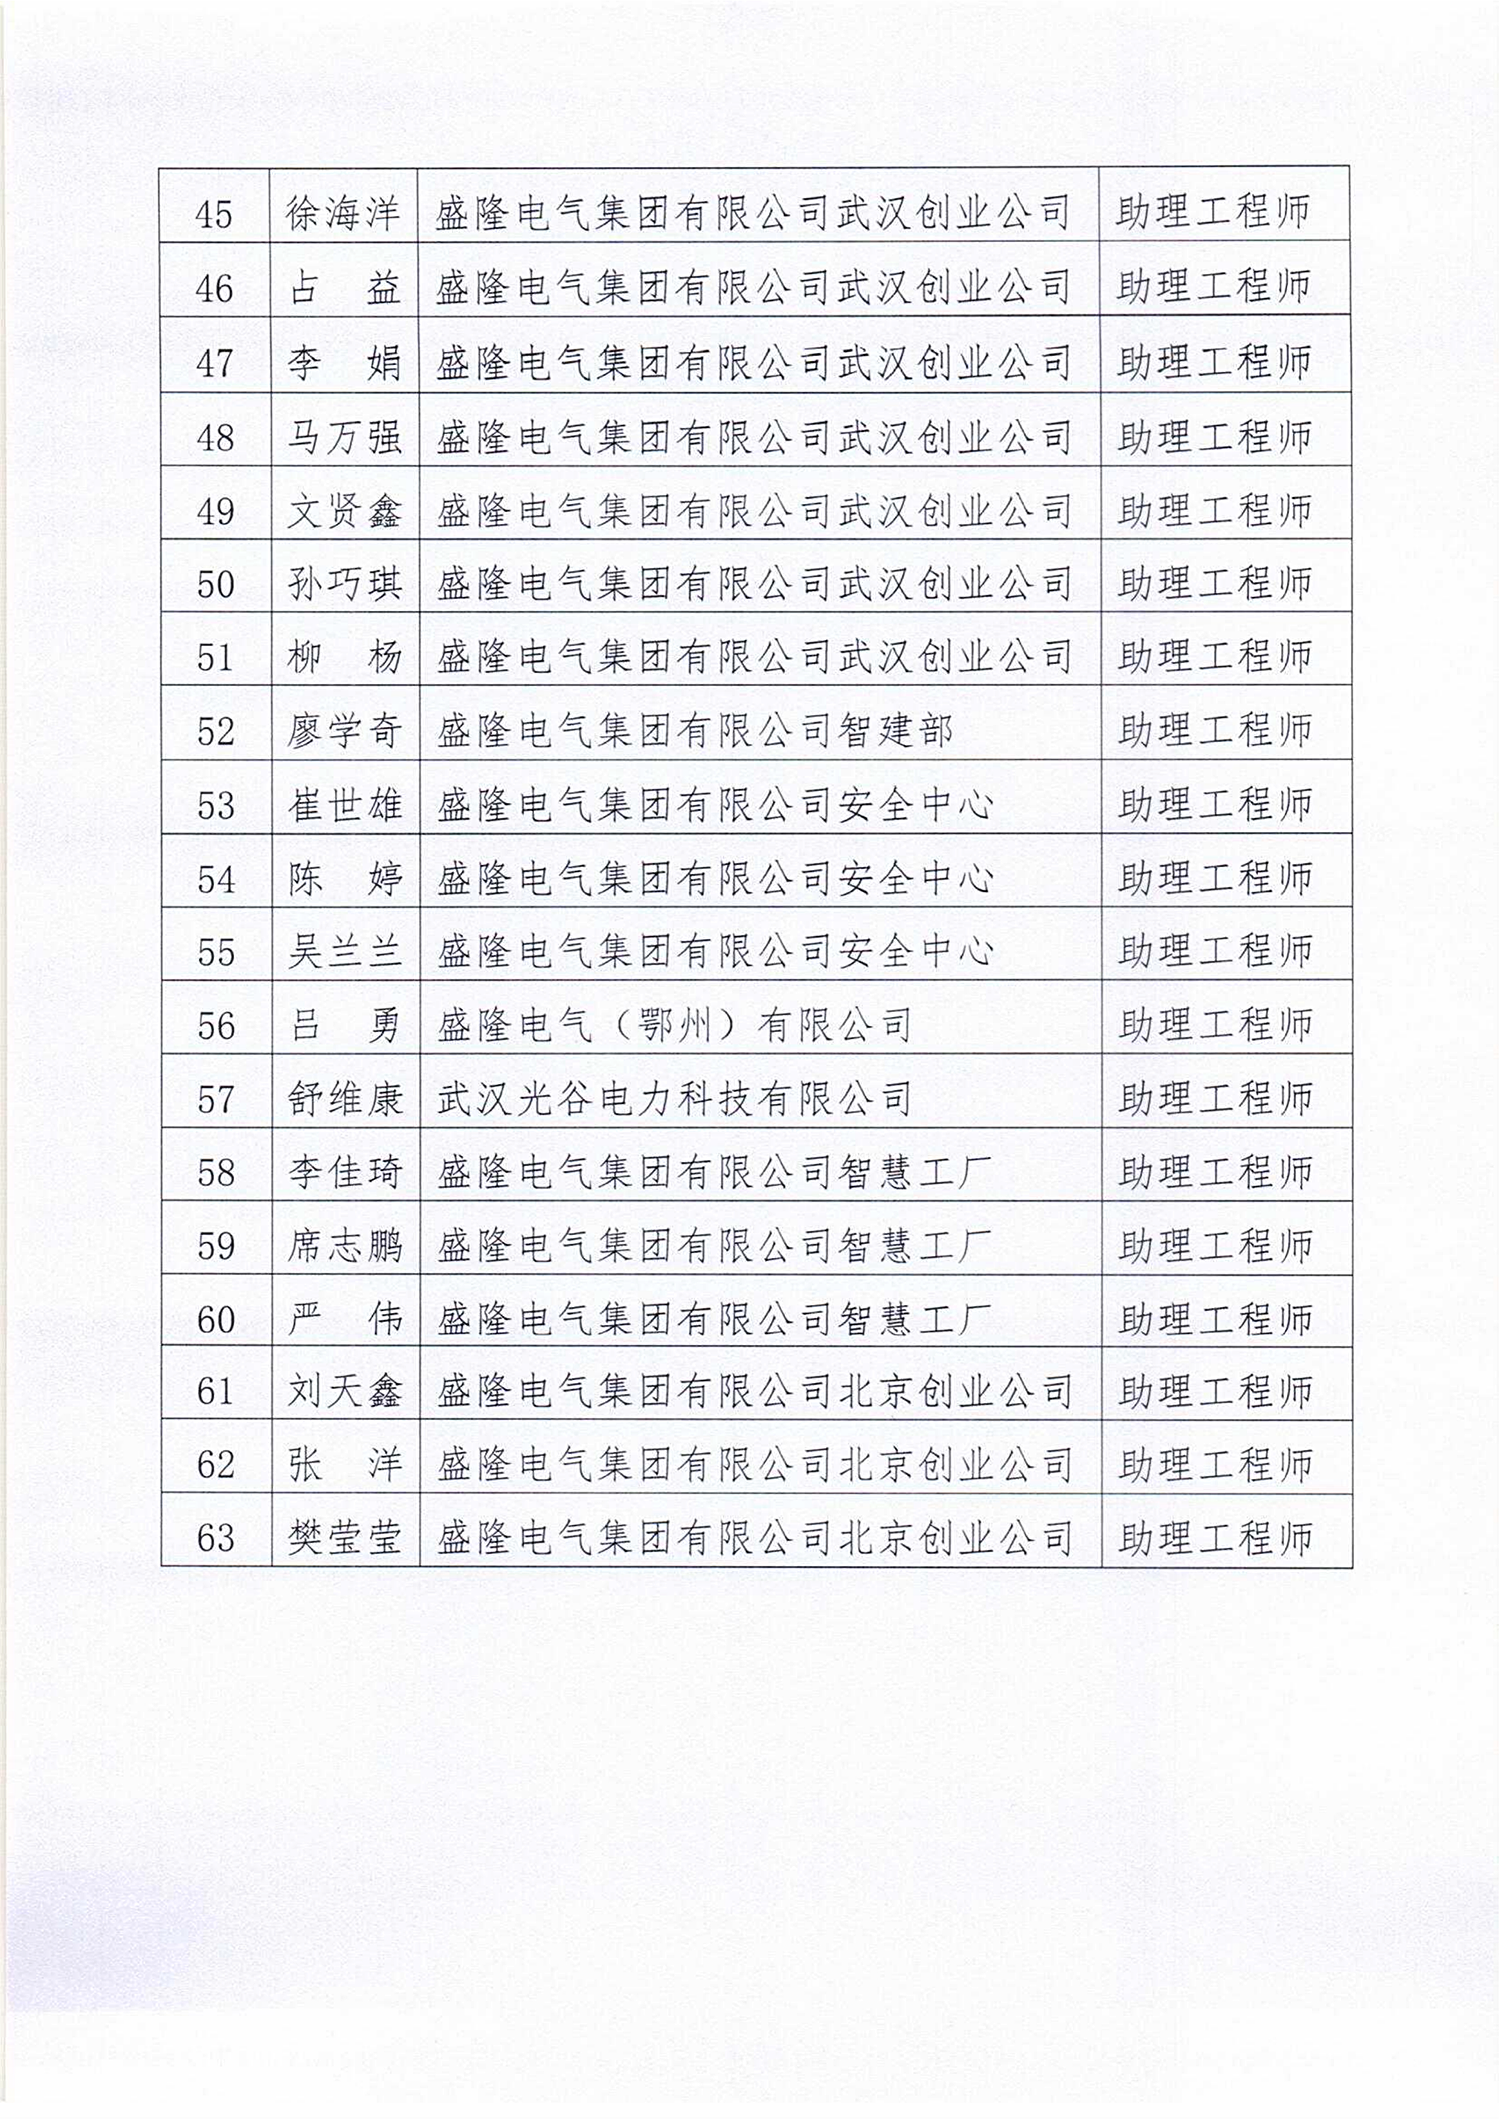 45 徐海洋 盛隆电气集团有限公司武汉创业公司 助理工程师
46 占 益 盛隆电气集团有限公司武汉创业公司 助理工程师
47 李 娟 盛隆电气集团有限公司武汉创业公司 助理工程师
48 马万强 盛隆电气集团有限公司武汉创业公司 助理工程师
49 文贤鑫 盛隆电气集团有限公司武汉创业公司 助理工程师
50 孙巧琪 盛隆电气集团有限公司武汉创业公司 助理工程师
51 柳 杨 盛隆电气集团有限公司武汉创业公司 助理工程师
52 廖学奇 盛隆电气集团有限公司智建部 助理工程师
53 崔世雄 盛隆电气集团有限公司安全中心 助理工程师
54 陈 婷 盛隆电气集团有限公司安全中心 助理工程师
55 吴兰兰 盛隆电气集团有限公司安全中心 助理工程师
56 吕 勇 盛隆电气（鄂州）有限公司 助理工程师
57 舒维康 武汉光谷电力科技有限公司 助理工程师
58 李佳琦 盛隆电气集团有限公司智慧工厂 助理工程师
59 席志鹏 盛隆电气集团有限公司智慧工厂 助理工程师
60 严 伟 盛隆电气集团有限公司智慧工厂 助理工程师
61 刘天鑫 盛隆电气集团有限公司北京创业公司 助理工程师
62 张 洋 盛隆电气集团有限公司北京创业公司 助理工程师
63 樊莹莹 盛隆电气集团有限公司北京创业公司 助理工程师